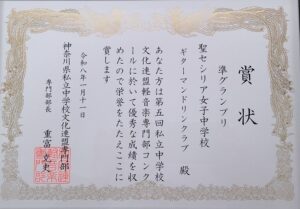 賞状
準グランプリ
聖セシリア女子中学校
ギターマンドリンクラブ 殿
あなた方は第五回私立中学校
文化連盟軽音楽専門部コンク
ールに於いて優秀な成績を収
めたので栄誉をたたえここに
賞します
令和八年一月十一日
神奈川県私立中学校文化連盟専門部
専門部部長
重富克史